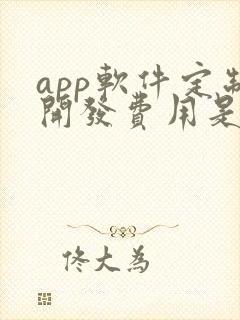 app軟件定制
開發費用是
佟大為